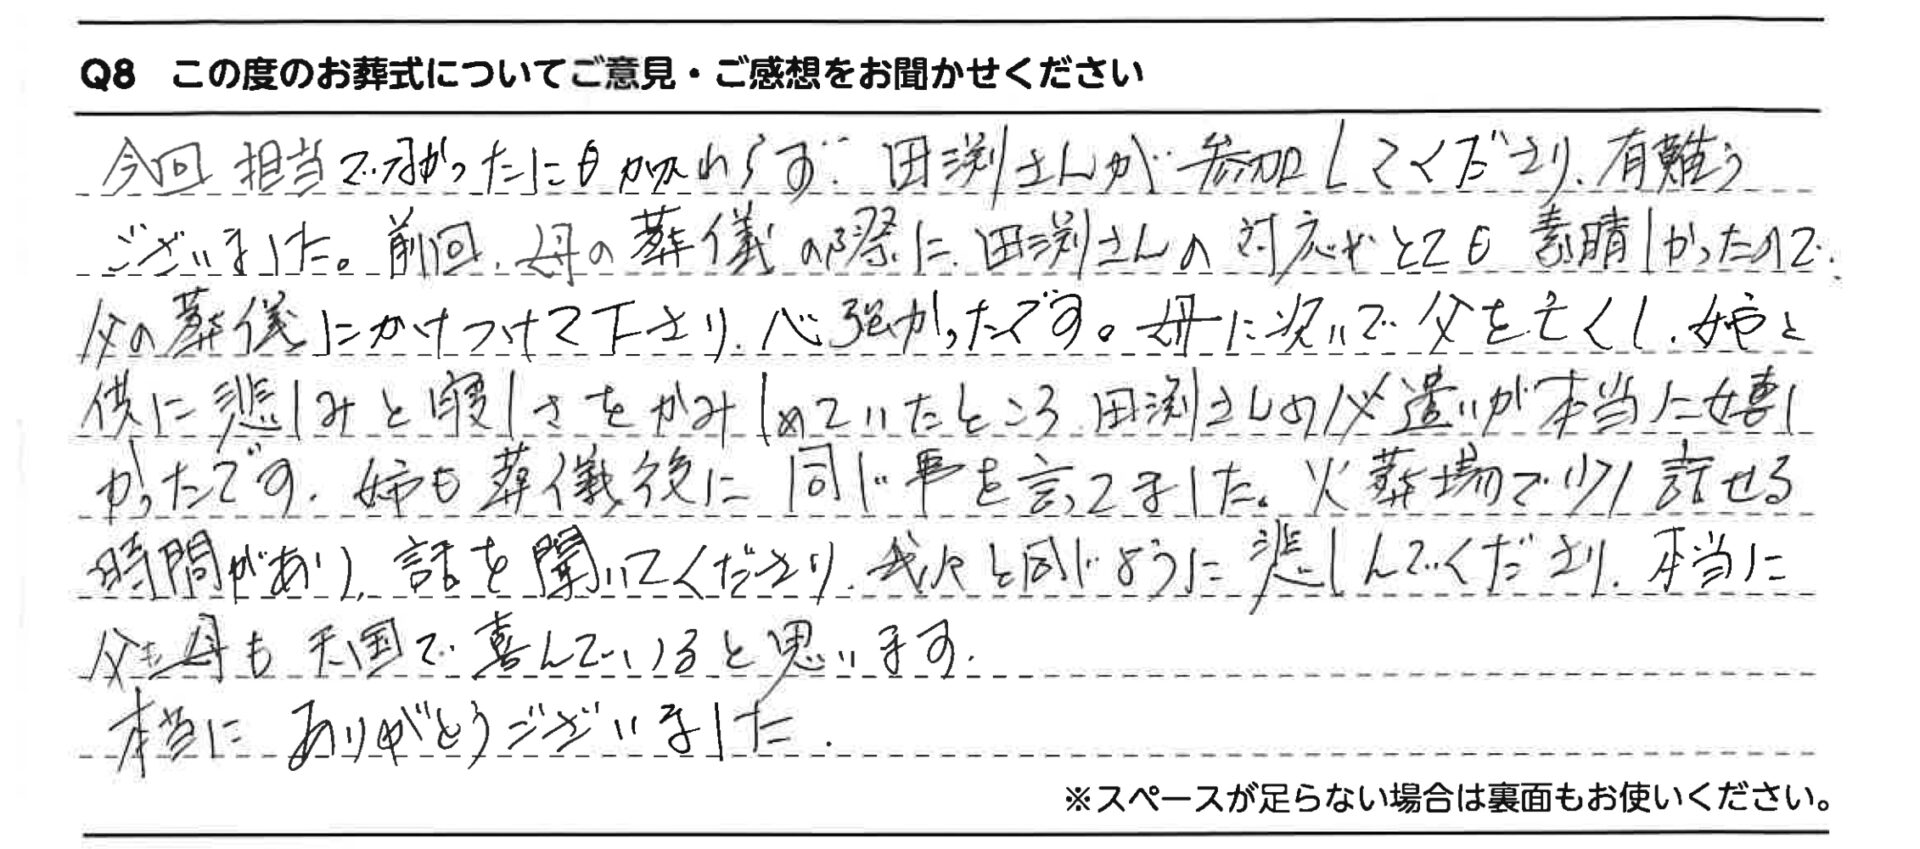 Q8 この度のお葬式についてご意見・ご感想をお聞かせください
今回 担当でなかったにもかかわらず 田渕さんが参加してくださり、有難う
ございました。前回、母の葬儀の際に、田渕さんの対応がとても素晴しかったので
父の葬儀にかけつけて下さり、心強かったです。母に次いで父を亡くし、姉と
僕に悲しみと寂しさをかみしめていたところ、田渕さんの心遣いが本当に嬉し
かったです。姉も葬儀後に同じ事を言ってました。火葬場で少し話せる
時間があり、話を聞いてくださり、我々と同じように悲しんでくださり、本当に
父も母も天国で喜んでいると思います。
本当にありがとうございました。
※スペースが足らない場合は裏面もお使いください。